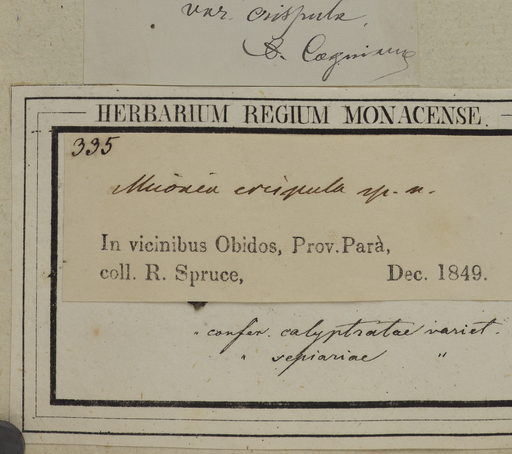 var. crispula.
C. Cogniaux
HERBARIUM REGIUM MONACENSE.
335
Miconia crispula sp. n.
In vicinibus Obidos, Prov. Parà,
coll. R. Spruce, Dec. 1849.
" confer. calyptratae variet.
" sepiariae "